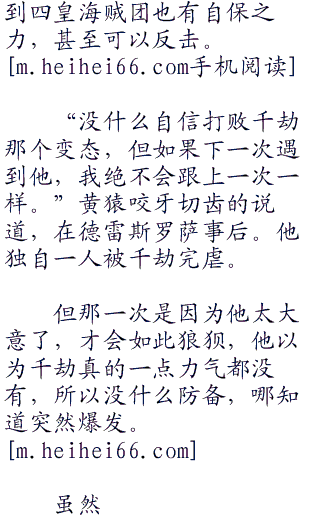 到四皇海贼团也有自保之
力，甚至可以反击。
[m.heihei66.com手机阅读]
“没什么自信打败千劫
那个变态，但如果下一次遇
到他，我绝不会跟上一次一
样。”黄猿咬牙切齿的说
道，在德雷斯罗萨事后。他
独自一人被千劫完虐。
但那一次是因为他太大
意了，才会如此狼狈，他以
为千劫真的一点力气都没
有，所以没什么防备，哪知
道突然爆发。
[m.heihei66.com]
虽然